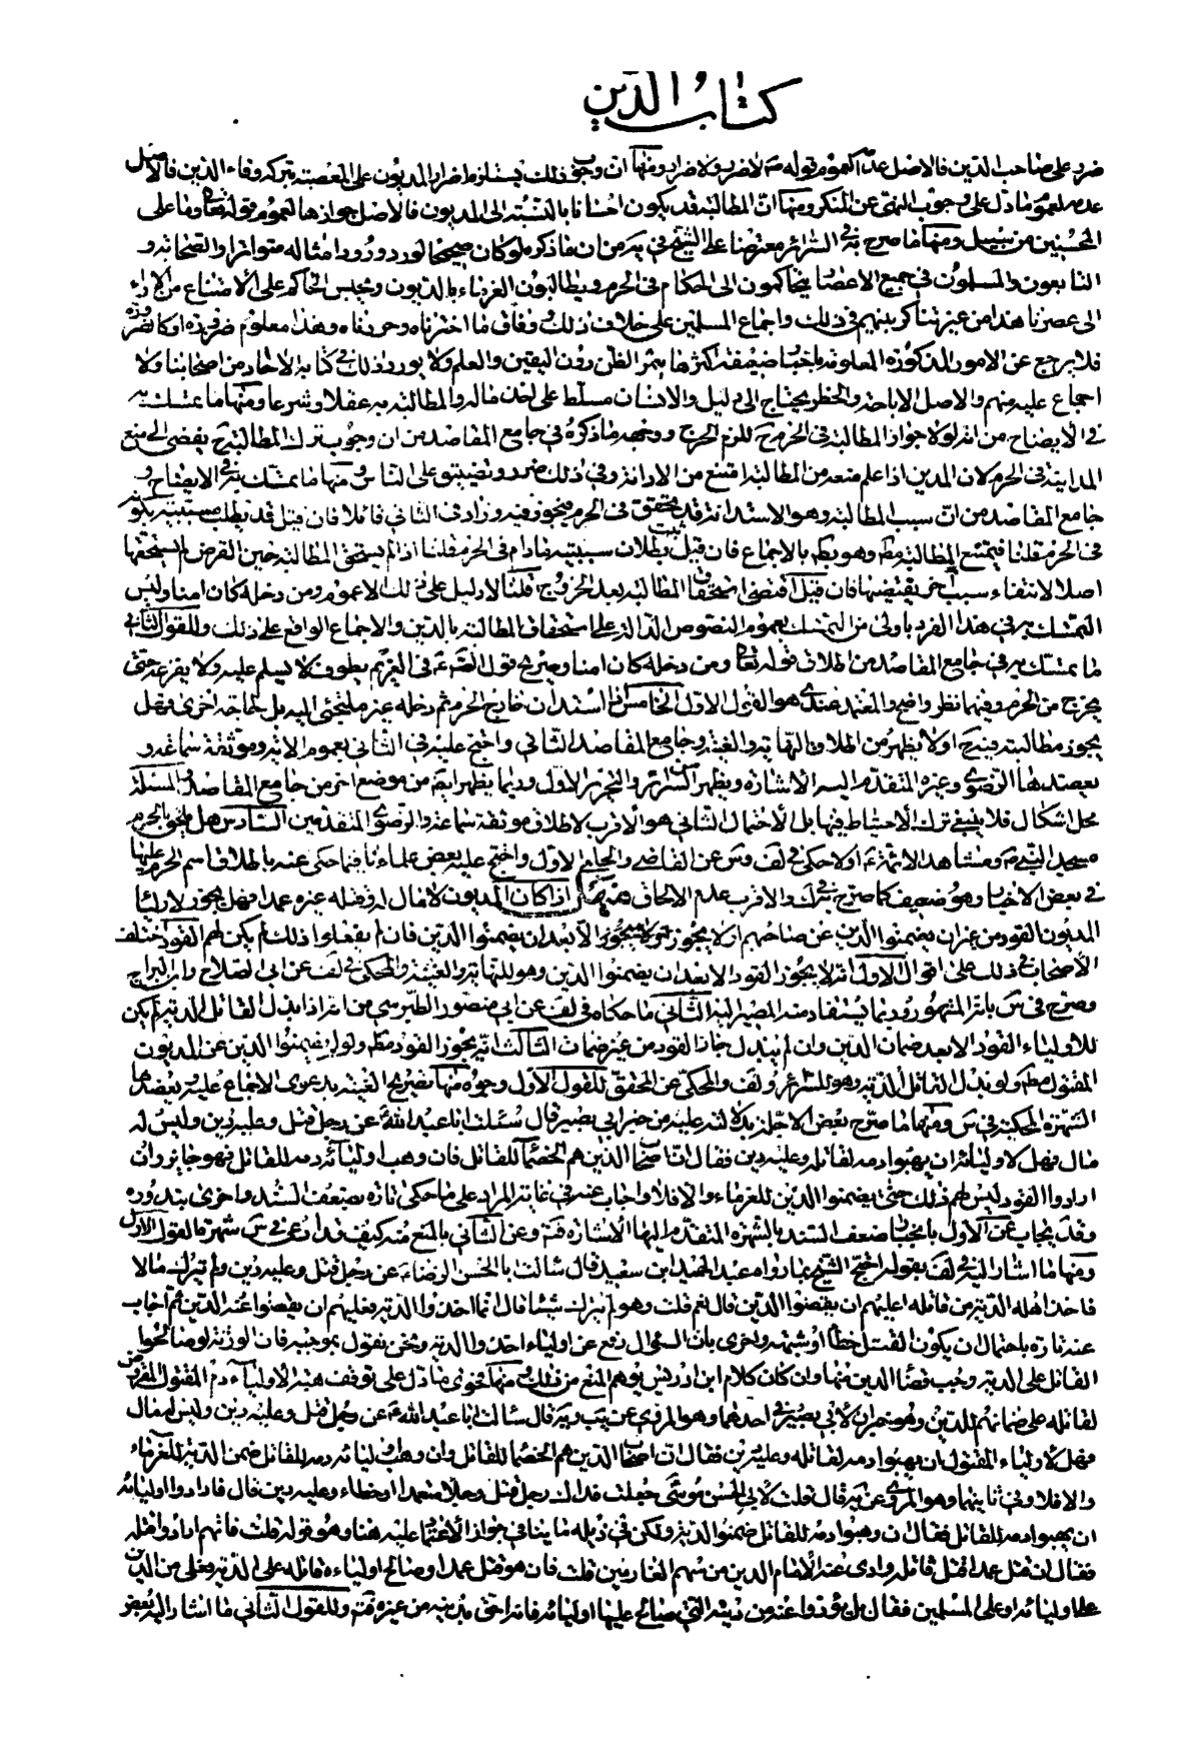 كتاب الدين
ضرر على صاحب الدين فالاصل عدمه لعموم قوله ص لا ضرر ولا ضرار ومنها ان وجوب ذلك يستلزم اضرار المديون على المعصية بتركه وفاء الدين فالاصل
عدمه لعموم ما دل على وجوب النهى عن المنكر ومنها ان المطالبة قد يكون احسانا بالنسبة الى المديون فالاصل جوازها لعموم قوله تعالى وما على
المحسنين من سبيل ومنها ما صرح به فى السرائر معترضا على الشيخ فى من ان ما ذكره لو كان صحيحا لورد ورود امثاله متواترا والصحابة و
التابعون والمسلمون فى جميع الاعصار يتحاكمون الى الحكام فى الحرم ويطالبون الغرماء بالديون ويحبس الحاكم على الامتناع من الاداء
الى عصرنا هذا من غير تناكر بينهم فى ذلك واجماع المسلمين على خلاف ذلك ووفاق ما اخترناه وحررناه وهذا معلوم ضرورة او كالضرورة
فلا يرجع عن الامور المذكورة المعلومة باخبار ضعيفة اكثرها يثمر الظن دون اليقين والعلم ولا يورد ذلك فى كتابه الا احاد من اصحابنا ولا
اجماع عليه منهم والاصل الاباحة والحظر يحتاج الى دليل والانسان مسلط على اخذ ماله والمطالبة به عقلا وشرعا ومنها ما تمسك به
فى الايضاح من انه لولا جواز المطالبة فى الحرم لزم الحرج ووجهه ما ذكره فى جامع المقاصد من ان وجوب ترك المطالبة يفضى الى منع
المداينة فى الحرم لان المدين اذا علم منعه من المطالبة امتنع من الادانة وفى ذلك ضرر وتضييق على الناس ومنها ما تمسك به فى الايضاح و
جامع المقاصد من ان سبب المطالبة وهو الاستدانة قد تحقق فى الحرم فيجوز فيه وزاد فى الثانى قائلا فان قيل قد بطلت سببيته بكونه
فى الحرم قلنا فيمتنع المطالبة مط وهو بط بالاجماع فان قيل بطلان سببيته مادام فى الحرم قلنا اذا لم يستحق المطالبة حين القرض لم يستحقها
اصلا لانتفاء سبب اخر يقتضيها فان قيل اقتضى استحقاق المطالبة بعد الخروج قلنا لا دليل على ذلك الا عموم ومن دخله كان امنا وليس
التمسك به فى هذا الفرد باولى من التمسك بعموم النصوص الدالة على استحقاق المطالبة بالدين والاجماع الواقع على ذلك وللقول الثانى
ما تمسك به فى جامع المقاصد من اطلاق قوله تعالى ومن دخله كان امنا وصريح قول الصادق ع فى الغريم يطوف لا يسلم عليه ولا يفزعه حتى
يخرج من الحرم وفيهما نظر واضح والمعتمد عندى هو القول الاول الخامس لو استدان خارج الحرم ثم دخله غير ملتجئ اليه بل لحاجة اخرى فهل
يجوز مطالبته فيه ح او لا يظهر من اطلاق النهاية والغنية وجامع المقاصد الثانى واحتج عليه فى الثانى بعموم الاية وموثقة سماعة و
يعضدها الرضوى وغيره المتقدم اليه الاشارة ويظهر السرائر والتحرير الاول وربما يظهر ايضا من موضع اخر من جامع المقاصد والمسئلة
محل اشكال فلا ينبغى ترك الاحتياط فيها بل الاحتمال الثانى هو الاقرب لاطلاق موثقة سماعة والرضوى المتقدمين السادس هل يلحق بالحرم
مسجد النبى ص ومشاهد الائمة ع او لا حكى فى لف وس عن القاضى والحلبى الاول واحتج عليه بعض علمائنا فيما حكى عنه باطلاق اسم الحرم عليها
فى بعض الاخبار وهو ضعيف كما صرح به فى لك والاقرب عدم الالحاق منهل اذا كان المديون لا مال له وقتله غيره عمدا فهل يجوز لاولياء
المديون القود من غير ان يضمنوا الدين عن صاحبهم او لا يجوز لهم الا بعد ان يضمنوا الدين فان لم يفعلوا ذلك لم يكن لهم القود اختلف
الاصحاب فى ذلك على اقوال الاول انه لا يجوز القود الا بعد ان يضمنوا الدين وهو للنهاية والغنية والمحكى فى لف عن ابى الصلاح وابن البراج
وصرح فى س بانه المشهور وربما يستفاد منه المصير اليه الثانى ما حكاه فى لف عن ابى منصور الطبرسى من انه اذا بذل القاتل الدية لم يكن
للاولياء القود الا بعد ضمان الدين وان لم يبذل جاز القود من غير ضمان الثالث انه يجوز القود مط ولو لم يضمنوا الدين عن المديون
المقتول مط ولو بذل القاتل الدية وهو للسرائر ولف والمحكى عن المحقق للقول الاول وجوه منها تصريح الغنية بدعوى الاجماع عليه ويعضدها
الشهرة المحكية فى س ومنها ما صرح بعض الاجلة بدلالته عليه من خبر ابى بصير قال سئلت ابا عبد الله ع عن رجل قتل وعليه دين وليس له
مال فهل لاوليائه ان يهبوا دمه لقاتله وعليه دين فقال ان اصحاب الدين هم الخصماء للقاتل فان وهب اوليائه دمه للقاتل فهو جائز وان
ارادوا القود ليس لهم ذلك حتى يضمنوا الدين للغرماء والا فلا واجاب عنه فى غاية المراد على ما حكى تارة بضعف السند واخرى بندوره
وقد يجاب عن الاول بانجبار ضعف السند بالشهرة المتقدم اليها الاشارة فتم وعن الثانى بالمنع منه كيف وقد ادعى فى س شهرة القول الاول
ومنها ما اشار اليه فى لف بقوله احتج الشيخ بما رواه عبد الحميد بن سعيد قال سألت ابا الحسن الرضا ع عن رجل قتل وعليه دين ولم يترك مالا
فاخذ اهله الدية من قاتله اعليهم ان يقضوا الدين قال نعم قلت وهو لم يترك شيئا قال انما اخذوا الدية فعليهم ان يقضوا عنه الدين ثم اجاب
عنه تارة باحتمال ان يكون القتل خطأ او شبهه واخرى بان السؤال وقع عن اولياء اخذوا الدية ونحن نقول بموجبه فان الورثة لو صالحوا
القاتل على الدية وجب قضاء الدين منها وان كان كلام ابن ادريس يوهم المنع من ذلك ومنها فحوى ما دل على توقف هبة الاولياء دم المقتول المفروض
لقاتله على ضمانهم للدين وهو خبران لابى بصير فى احدهما وهو المروى عن يب قال سألت ابا عبد الله ع عن رجل قتل وعليه دين وليس له مال
فهل لاولياء المقتول ان يهبوا دمه لقاتله وعليه دين فقال ان اصحاب الدين هم الخصماء للقاتل وان وهب اوليائه دمه للقاتل ضمن الدية للغرماء
والا فلا وفى ثانيهما وهو المروى عن يه قال قلت لابى الحسن موسى ع جعلت فداك رجل قتل رجلا متعمدا او خطاء وعليه دين قال فارادوا اوليائه
ان يهبوا دمه للقاتل فقال ان وهبوا دمه للقاتل ضمنوا الدية ولكن فى ذيله ما ينافى جواز الاعتماد عليه هنا وهو قوله قلت فانهم ارادوا قتله
فقال ان قتل عمدا قتل قاتله وادى عنه الامام الدين من سهم الغارمين قلت فان هو قتل عمدا وصالح اولياءه قاتله على الدية فعلى من الدين
على اوليائه او على المسلمين فقال بل يؤدوا عنه من ديته التى صالح عليها اوليائه فانه احق بديته من غيره فتم وللقول الثانى ما اشار اليه بعض